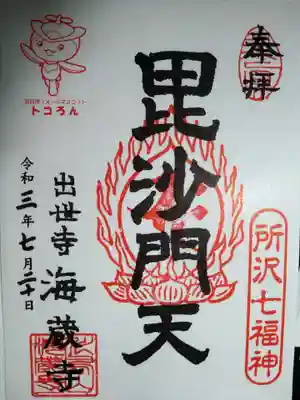 奉拝
毘沙門天
所沢七福神
出世寺 海蔵寺
令和三年七月二十日
トコろん